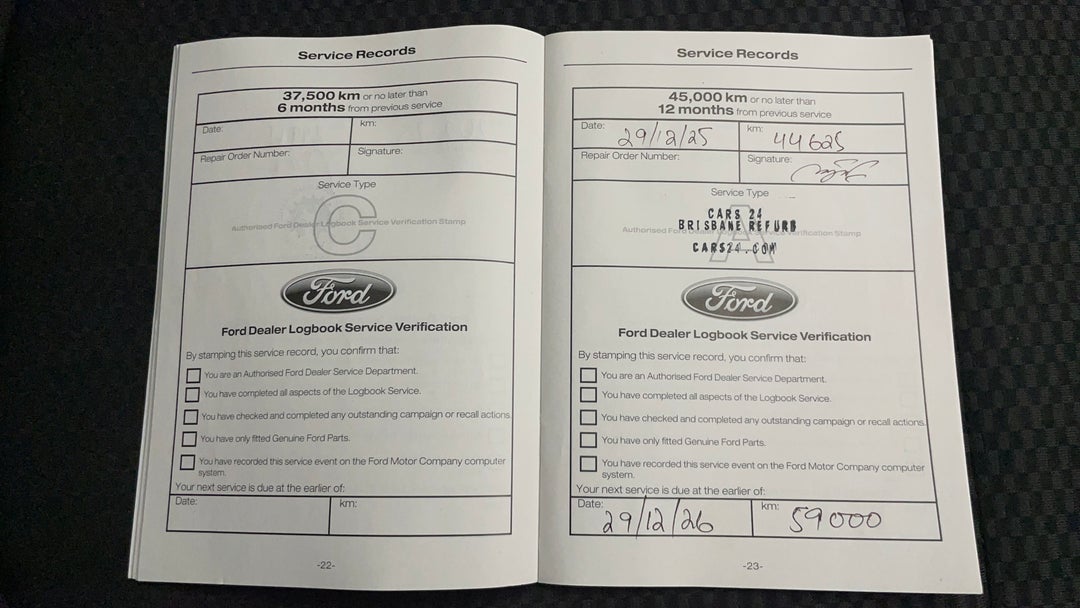 Service Records
37,500 km or no later than
6 months from previous service
Date:
km:
Repair Order Number:
Signature:
Service Type
C
Authorised Ford Dealer Logbook Service Verification Stamp
Ford
Ford Dealer Logbook Service Verification
By stamping this service record, you confirm that:
You are an Authorised Ford Dealer Service Department.
You have completed all aspects of the Logbook Service.
You have checked and completed any outstanding campaign or recall actions.
You have only fitted Genuine Ford Parts.
You have recorded this service event on the Ford Motor Company computer
system.
Your next service is due at the earlier of:
Date:
km:
-22-
Service Records
45,000 km or no later than
12 months from previous service
Date: 29/12/25
km: 44625
Repair Order Number:
Signature:
Service Type
A
CARS 24
BRISBANE REFURB
Authorised Ford Dealer Logbook Service Verification Stamp
CARS24.COM
Ford
Ford Dealer Logbook Service Verification
By stamping this service record, you confirm that:
You are an Authorised Ford Dealer Service Department.
You have completed all aspects of the Logbook Service.
You have checked and completed any outstanding campaign or recall actions.
You have only fitted Genuine Ford Parts.
You have recorded this service event on the Ford Motor Company computer
system.
Your next service is due at the earlier of:
Date: 29/12/26
km: 59000
-23-